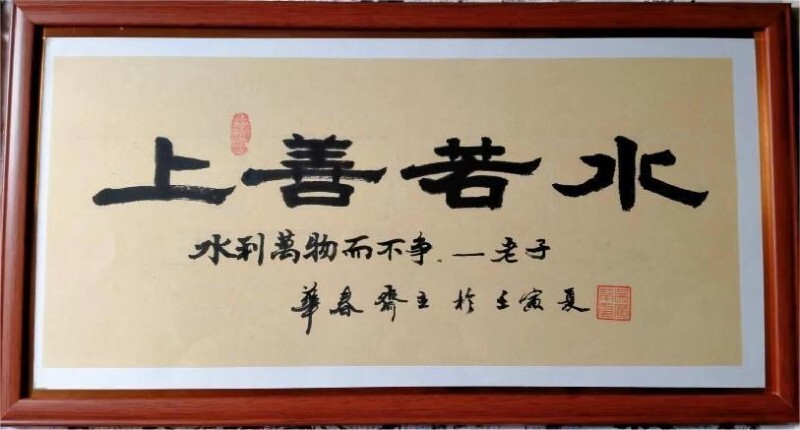 上善若水
水利萬物而不争.—老子
華春齋主於壬寅夏